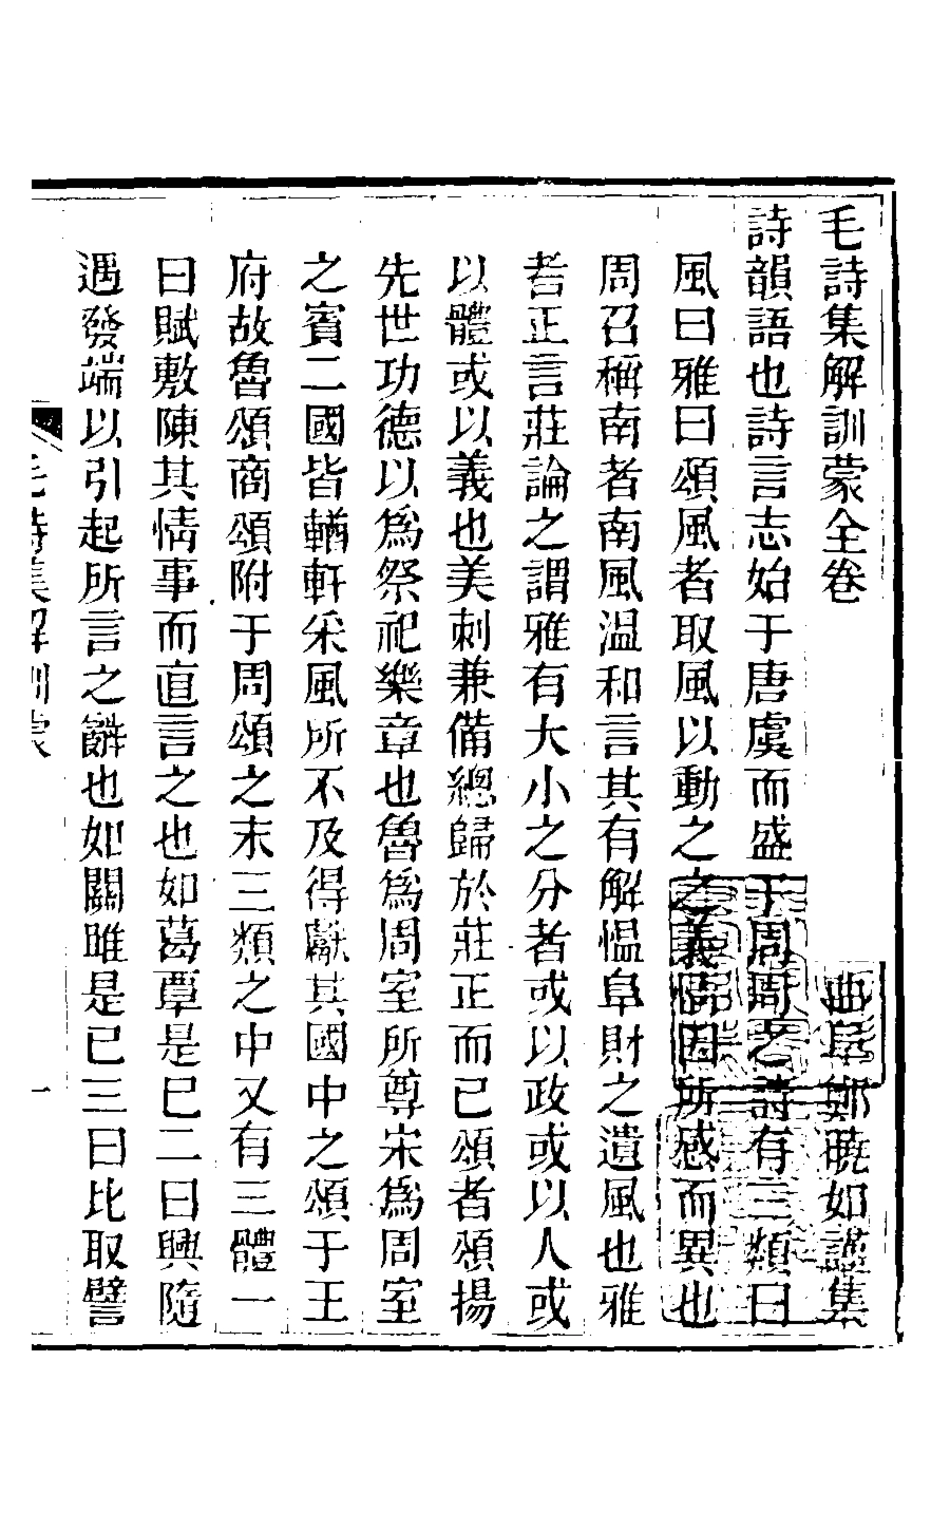 毛詩集解訓蒙全卷
曲阜鄭曉如謹集
詩韻語也詩言志始于唐虞而盛于周周之詩有三類曰
風曰雅曰頌風者取風以動之之義情因所感而異也
周召稱南者南風溫和言其有解慍阜財之遺風也雅
者正言莊論之謂雅有大小之分者或以政或以人或
以體或以義也美刺兼備總歸於莊正而已頌者頌揚
先世功德以爲祭祀樂章也魯爲周室所尊宋爲周室
之賓二國皆輶軒采風所不及得獻其國中之頌于王
府故魯頌商頌附于周頌之末三類之中又有三體一
曰賦敷陳其情事而直言之也如葛覃是巳二曰興隨
遇發端以引起所言之辭也如關雎是已三曰比取譬
毛詩集解訓蒙
一